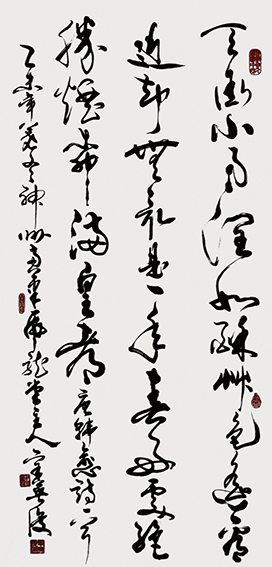 天街小雨润如酥草色遥看
近却无最是一年春好处绝
胜烟柳满皇都 唐韩愈诗一首
乙未年 神州 虎龙堂主人